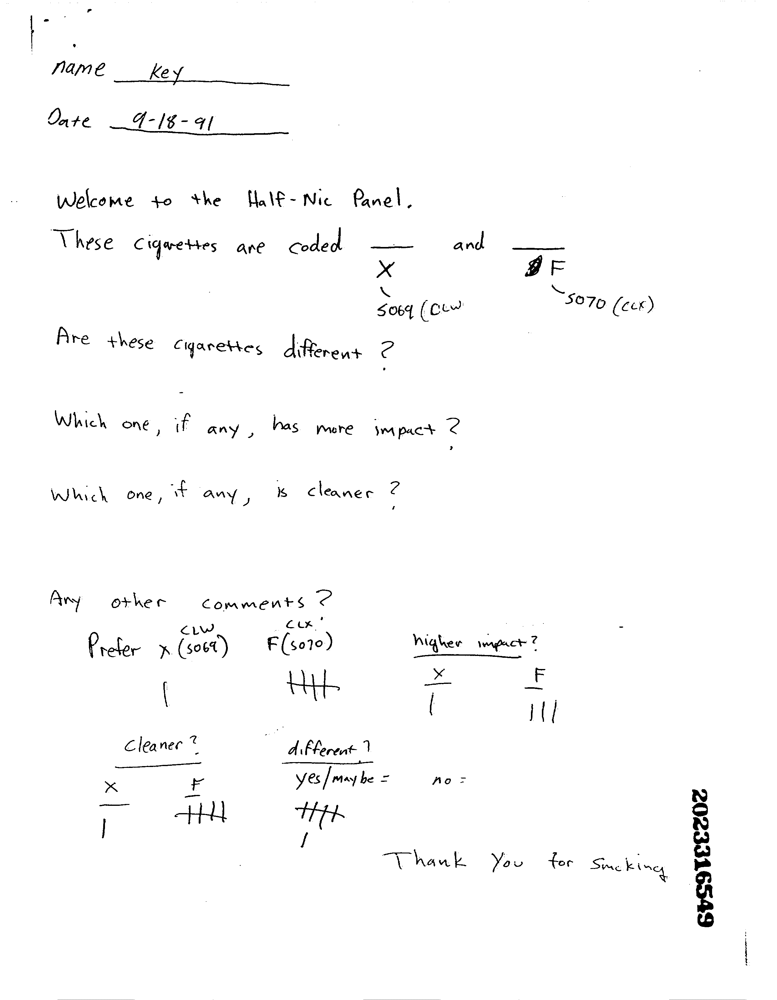 name Key
Date 9-18-91
Welcome to the Half-Nic Panel.
These cigarettes are coded ____ and ____
X F
5069 (CLW 5070 (CLX)
Are these cigarettes different?
Which one, if any, has more impact?
Which one, if any, is cleaner?
Any other comments?
CLW CLX
Prefer X (5069) F(5070) higher impact?
X F
| |||
Cleaner? different?
X F yes/maybe = no =
Thank You for Smoking
2023316549